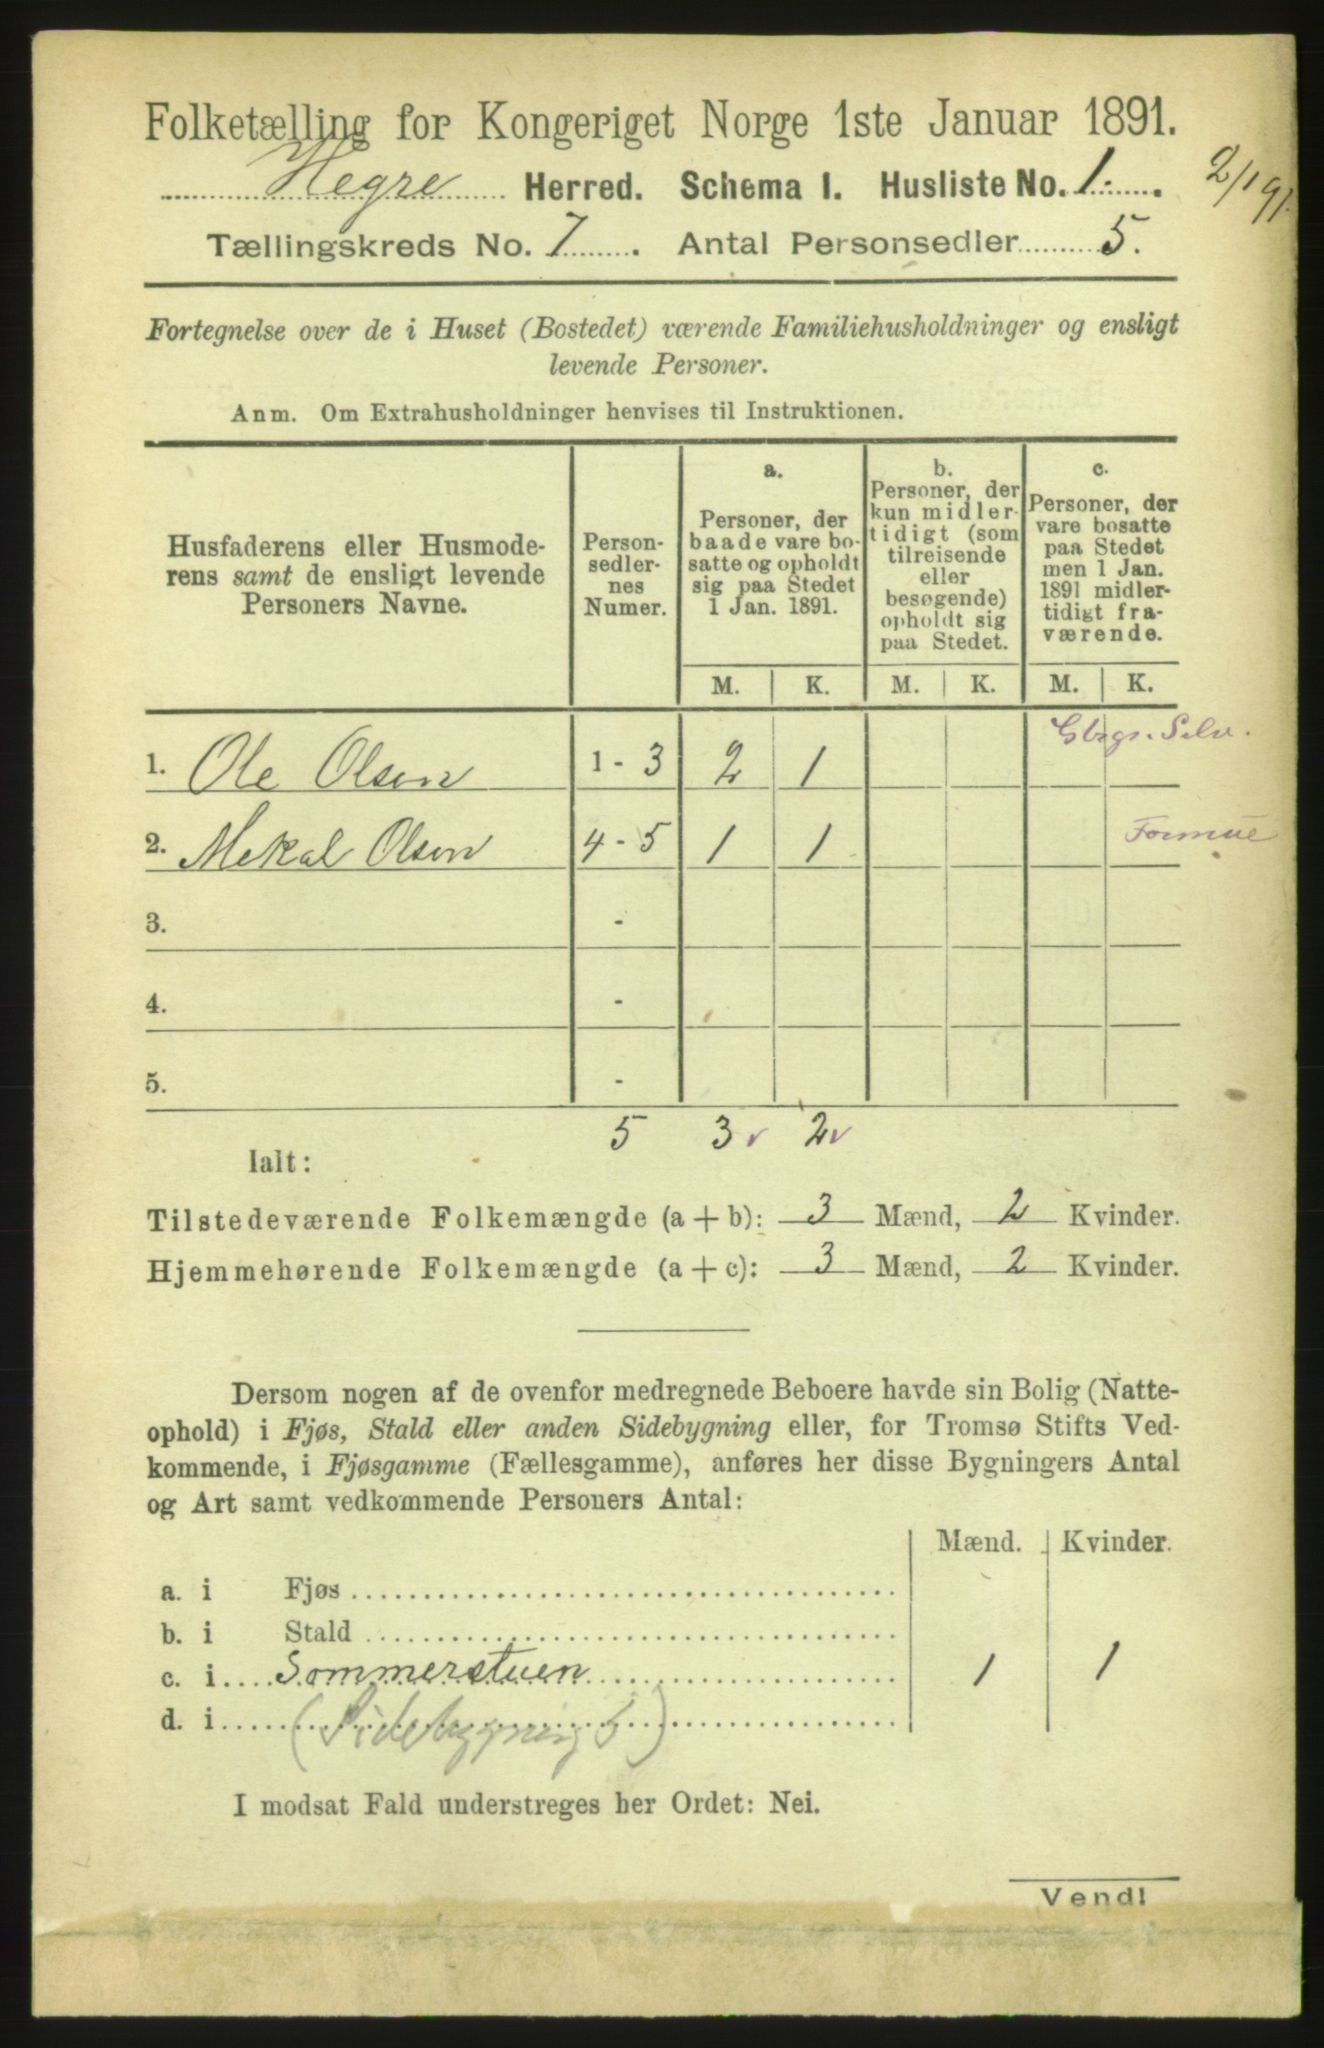 Folketælling for Kongeriget Norge 1ste Januar 1891.
Hegre Herred. Schema I. Husliste No. 1.
2/1 91.
Tællingskreds No. 7. Antal Personsedler 5.
Fortegnelse over de i Huset (Bostedet) værende Familiehusholdninger og ensligt
levende Personer.
Anm. Om Extrahusholdninger henvises til Instruktionen.
Husfaderens eller Husmode-
rens samt de ensligt levende
Personers Navne.
Person-
sedler-
nes
Numer.
a.
Personer, der
baade vare bo-
satte og opholdt
sig paa Stedet
1 Jan. 1891.
b.
Personer, der
kun midler-
tidigt (som
tilreisende
eller
besøgende)
opholdt sig
paa Stedet.
c.
Personer, der
vare bosatte
paa Stedet
men 1 Jan.
1891 midler-
tidigt fra-
værende.
M. K. M. K. M. K.
Gbrgr. Selv.
1. Ole Olsen 1 - 3 2 1
2. Mekal Olsen 4 - 5 1 1 Formue
3. -
4. -
5. -
5 3 v 2 v
Ialt:
Tilstedeværende Folkemængde (a + b): 3 Mænd, 2 Kvinder.
Hjemmehørende Folkemængde (a + c): 3 Mænd, 2 Kvinder.
Dersom nogen af de ovenfor medregnede Beboere havde sin Bolig (Natte-
ophold) i Fjøs, Stald eller anden Sidebygning eller, for Tromsø Stifts Ved-
kommende, i Fjøsgamme (Fællesgamme), anføres her disse Bygningers Antal
og Art samt vedkommende Personers Antal:
Mænd. Kvinder.
a. i Fjøs
b. i Stald
c. i Sommerstuen 1 1
d. i (Sidebygning)
I modsat Fald understreges her Ordet: Nei.
Vend!